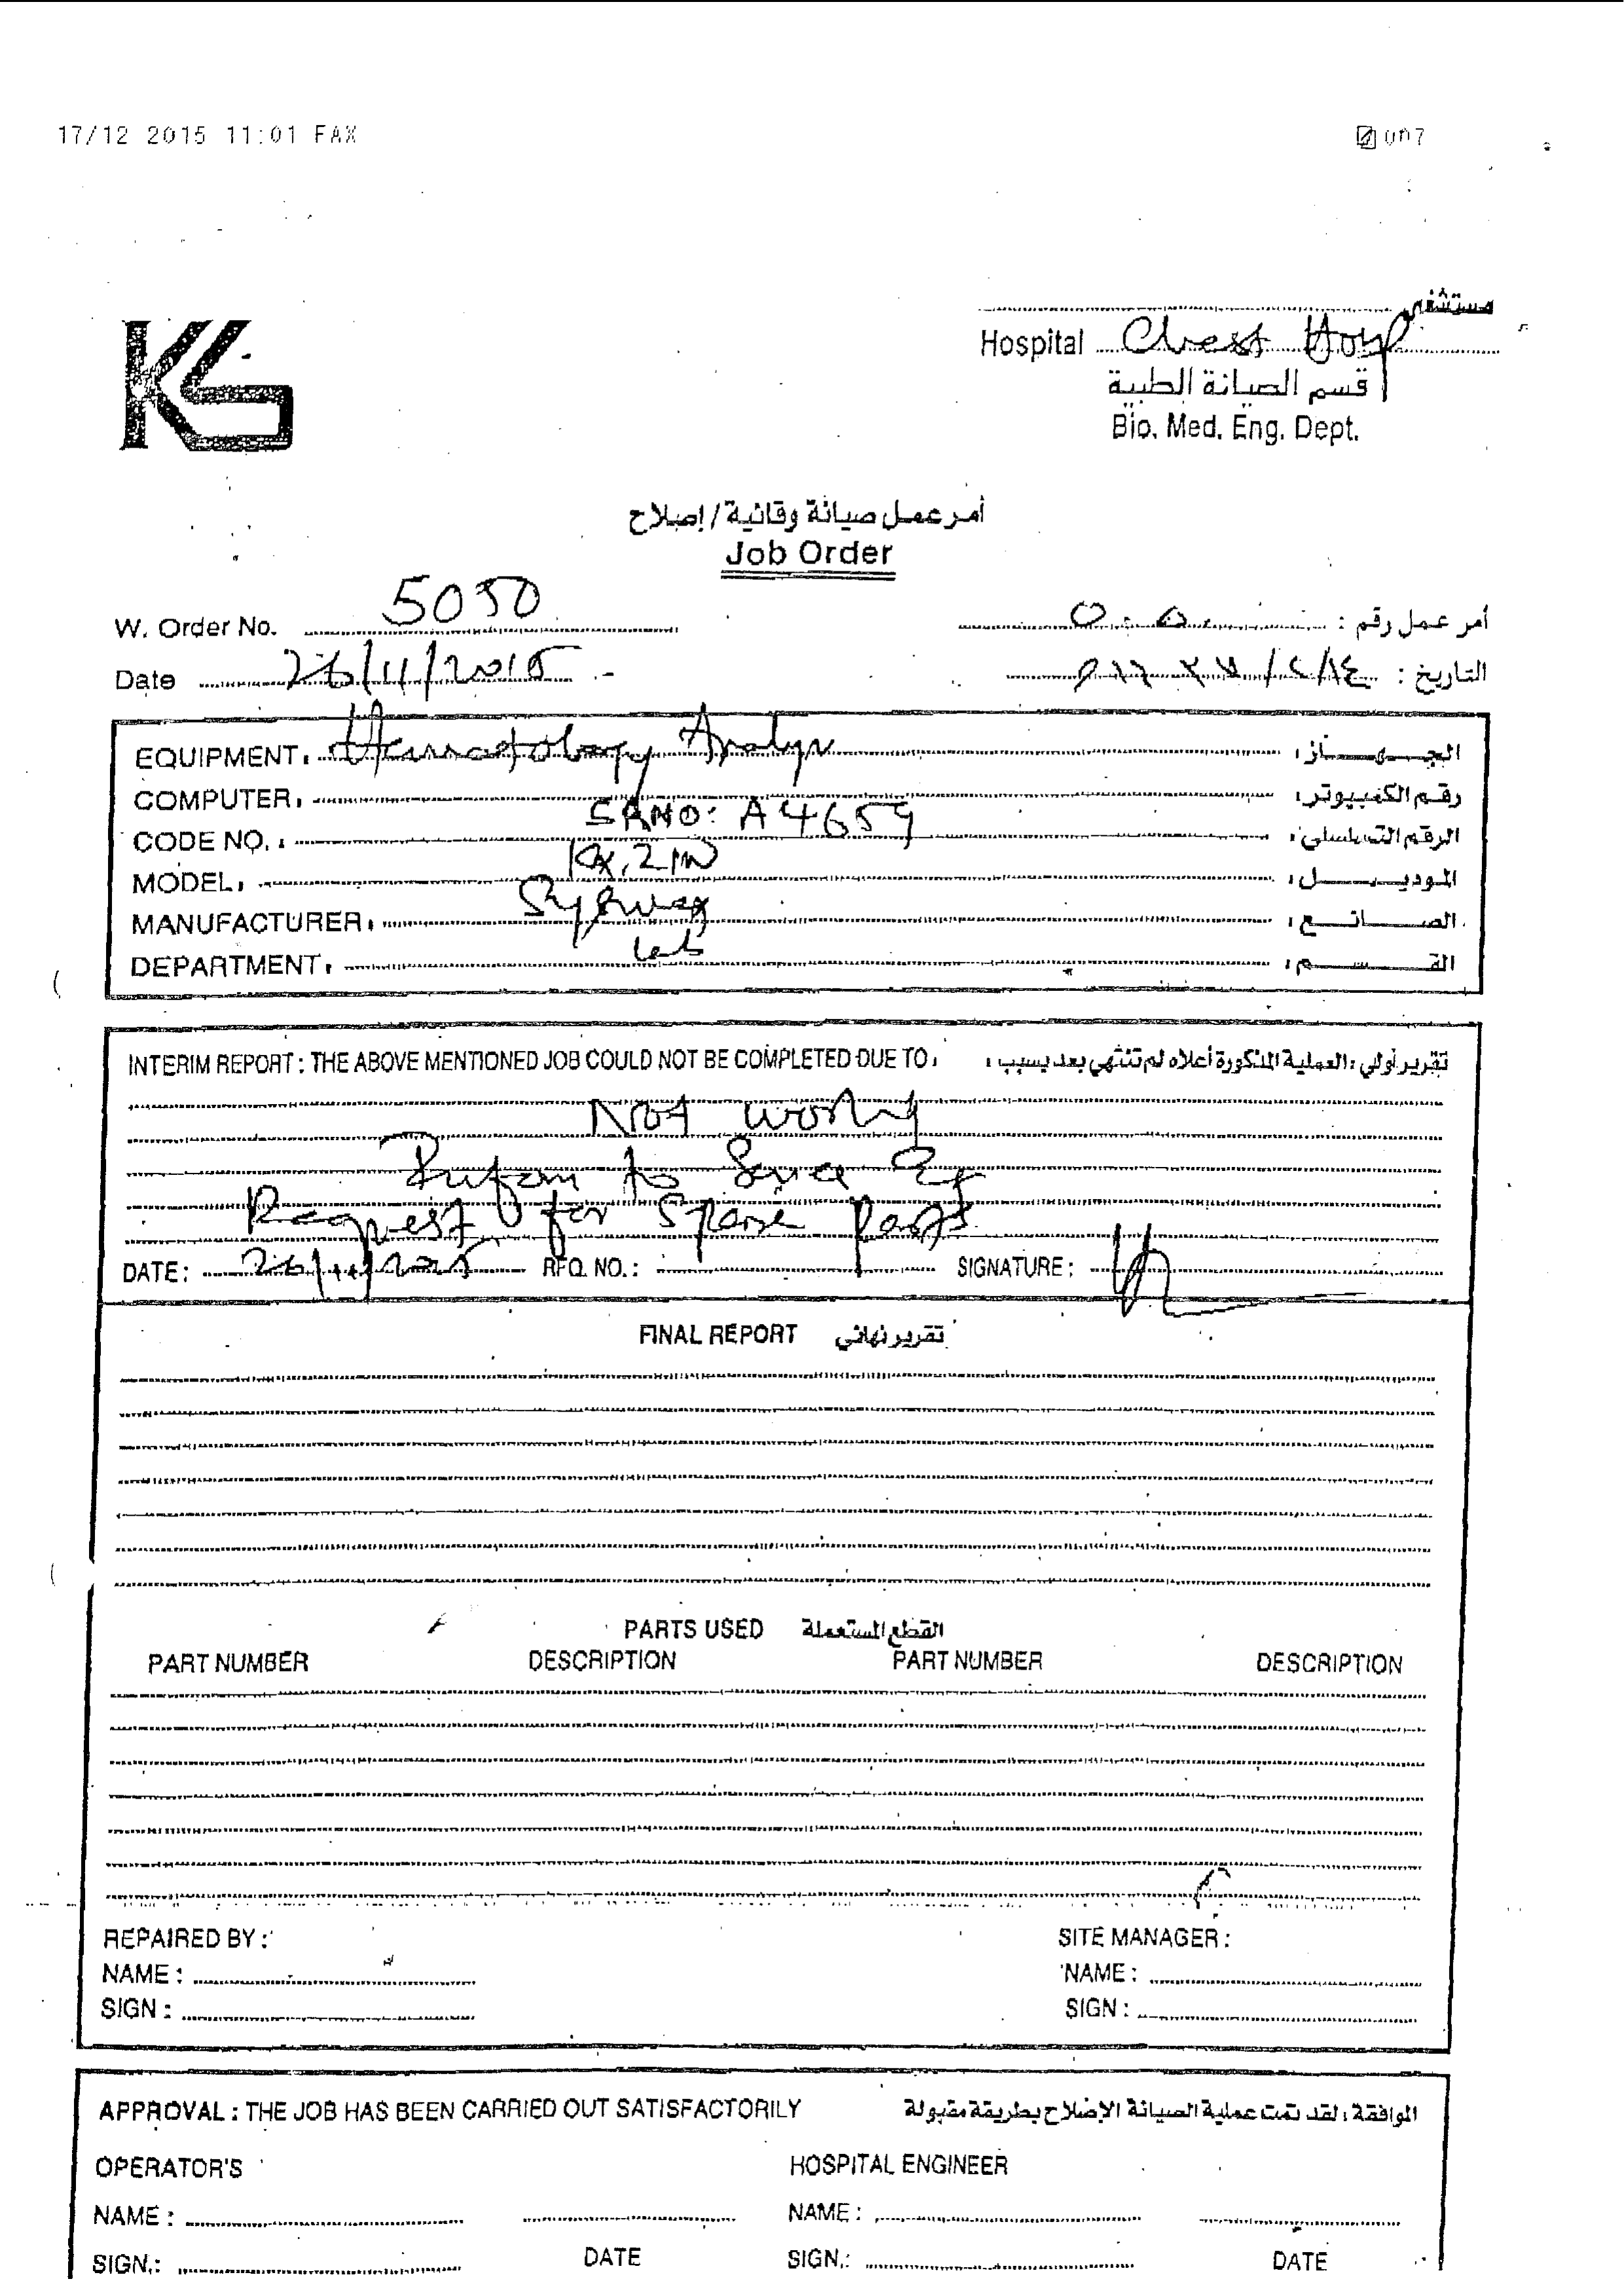 17/12 2015 11:01 FAX
007
KG
مستشفى
Hospital Chest Hosp
قسم الصيانة الطبية
Bio. Med. Eng. Dept.
أمر عمل صيانة وقائية / إصلاح
Job Order
W. Order No. 5050
أمر عمل رقم : ٥٠٥٠
Date 26/11/2015
التاريخ :
EQUIPMENT: Haematology Analyr
الجهاز:
COMPUTER:
رقم الكمبيوتر:
SRNO: A4659
CODE NO. :
الرقم التسلسلي:
MODEL: KX.21N
الموديل:
MANUFACTURER:
الصانع:
DEPARTMENT: Lab
القسم:
INTERIM REPORT : THE ABOVE MENTIONED JOB COULD NOT BE COMPLETED DUE TO:
تقرير أولي : العملية المذكورة أعلاه لم تنتهي بعد بسبب :
Not working
to
Request for Spare Parts
DATE: 26/11/2015 RFQ. NO.: SIGNATURE:
FINAL REPORT تقرير نهائي
PARTS USED القطع المستعملة
PART NUMBER DESCRIPTION PART NUMBER DESCRIPTION
REPAIRED BY : SITE MANAGER :
NAME : NAME :
SIGN : SIGN :
APPROVAL : THE JOB HAS BEEN CARRIED OUT SATISFACTORILY
الموافقة : لقد تمت عملية الصيانة الإصلاح بطريقة مقبولة
OPERATOR'S HOSPITAL ENGINEER
NAME : NAME :
SIGN.: DATE SIGN.: DATE